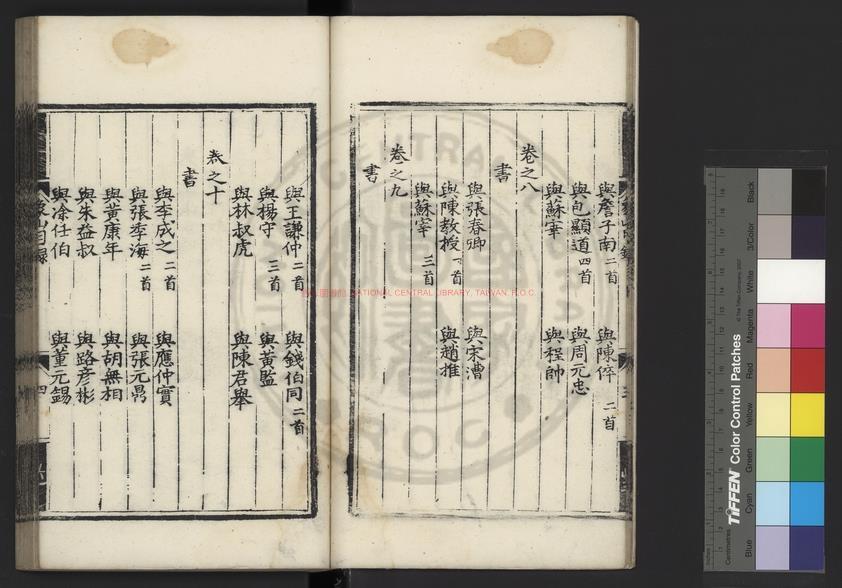 與詹子南二首 與陳倅二首
與包顯道四首 與周元忠
與蘇宰 與程帥
卷之八
書
與張春卿 與宋漕
與陳教授二首 與趙推
與蘇宰三首
卷之九
書
與王謙仲二首 與錢伯同二首
與楊守三首 與黃監
與林叔虎 與陳君舉
卷之十
書
與李成之二首 與應仲寔
與張季海二首 與張元鼎
與黃康年 與胡無相
與朱益叔 與路彥彬
與涂任伯 與董元錫
象山目錄 四
NATIONAL CENTRAL LIBRARY, TAIWAN, R.O.C
TIFFEN Color Control Patches
© The Tiffen Company, 2007
Centimetres
Inches
Blue
Cyan
Green
Yellow
Red
Magenta
White
3/Color
Black